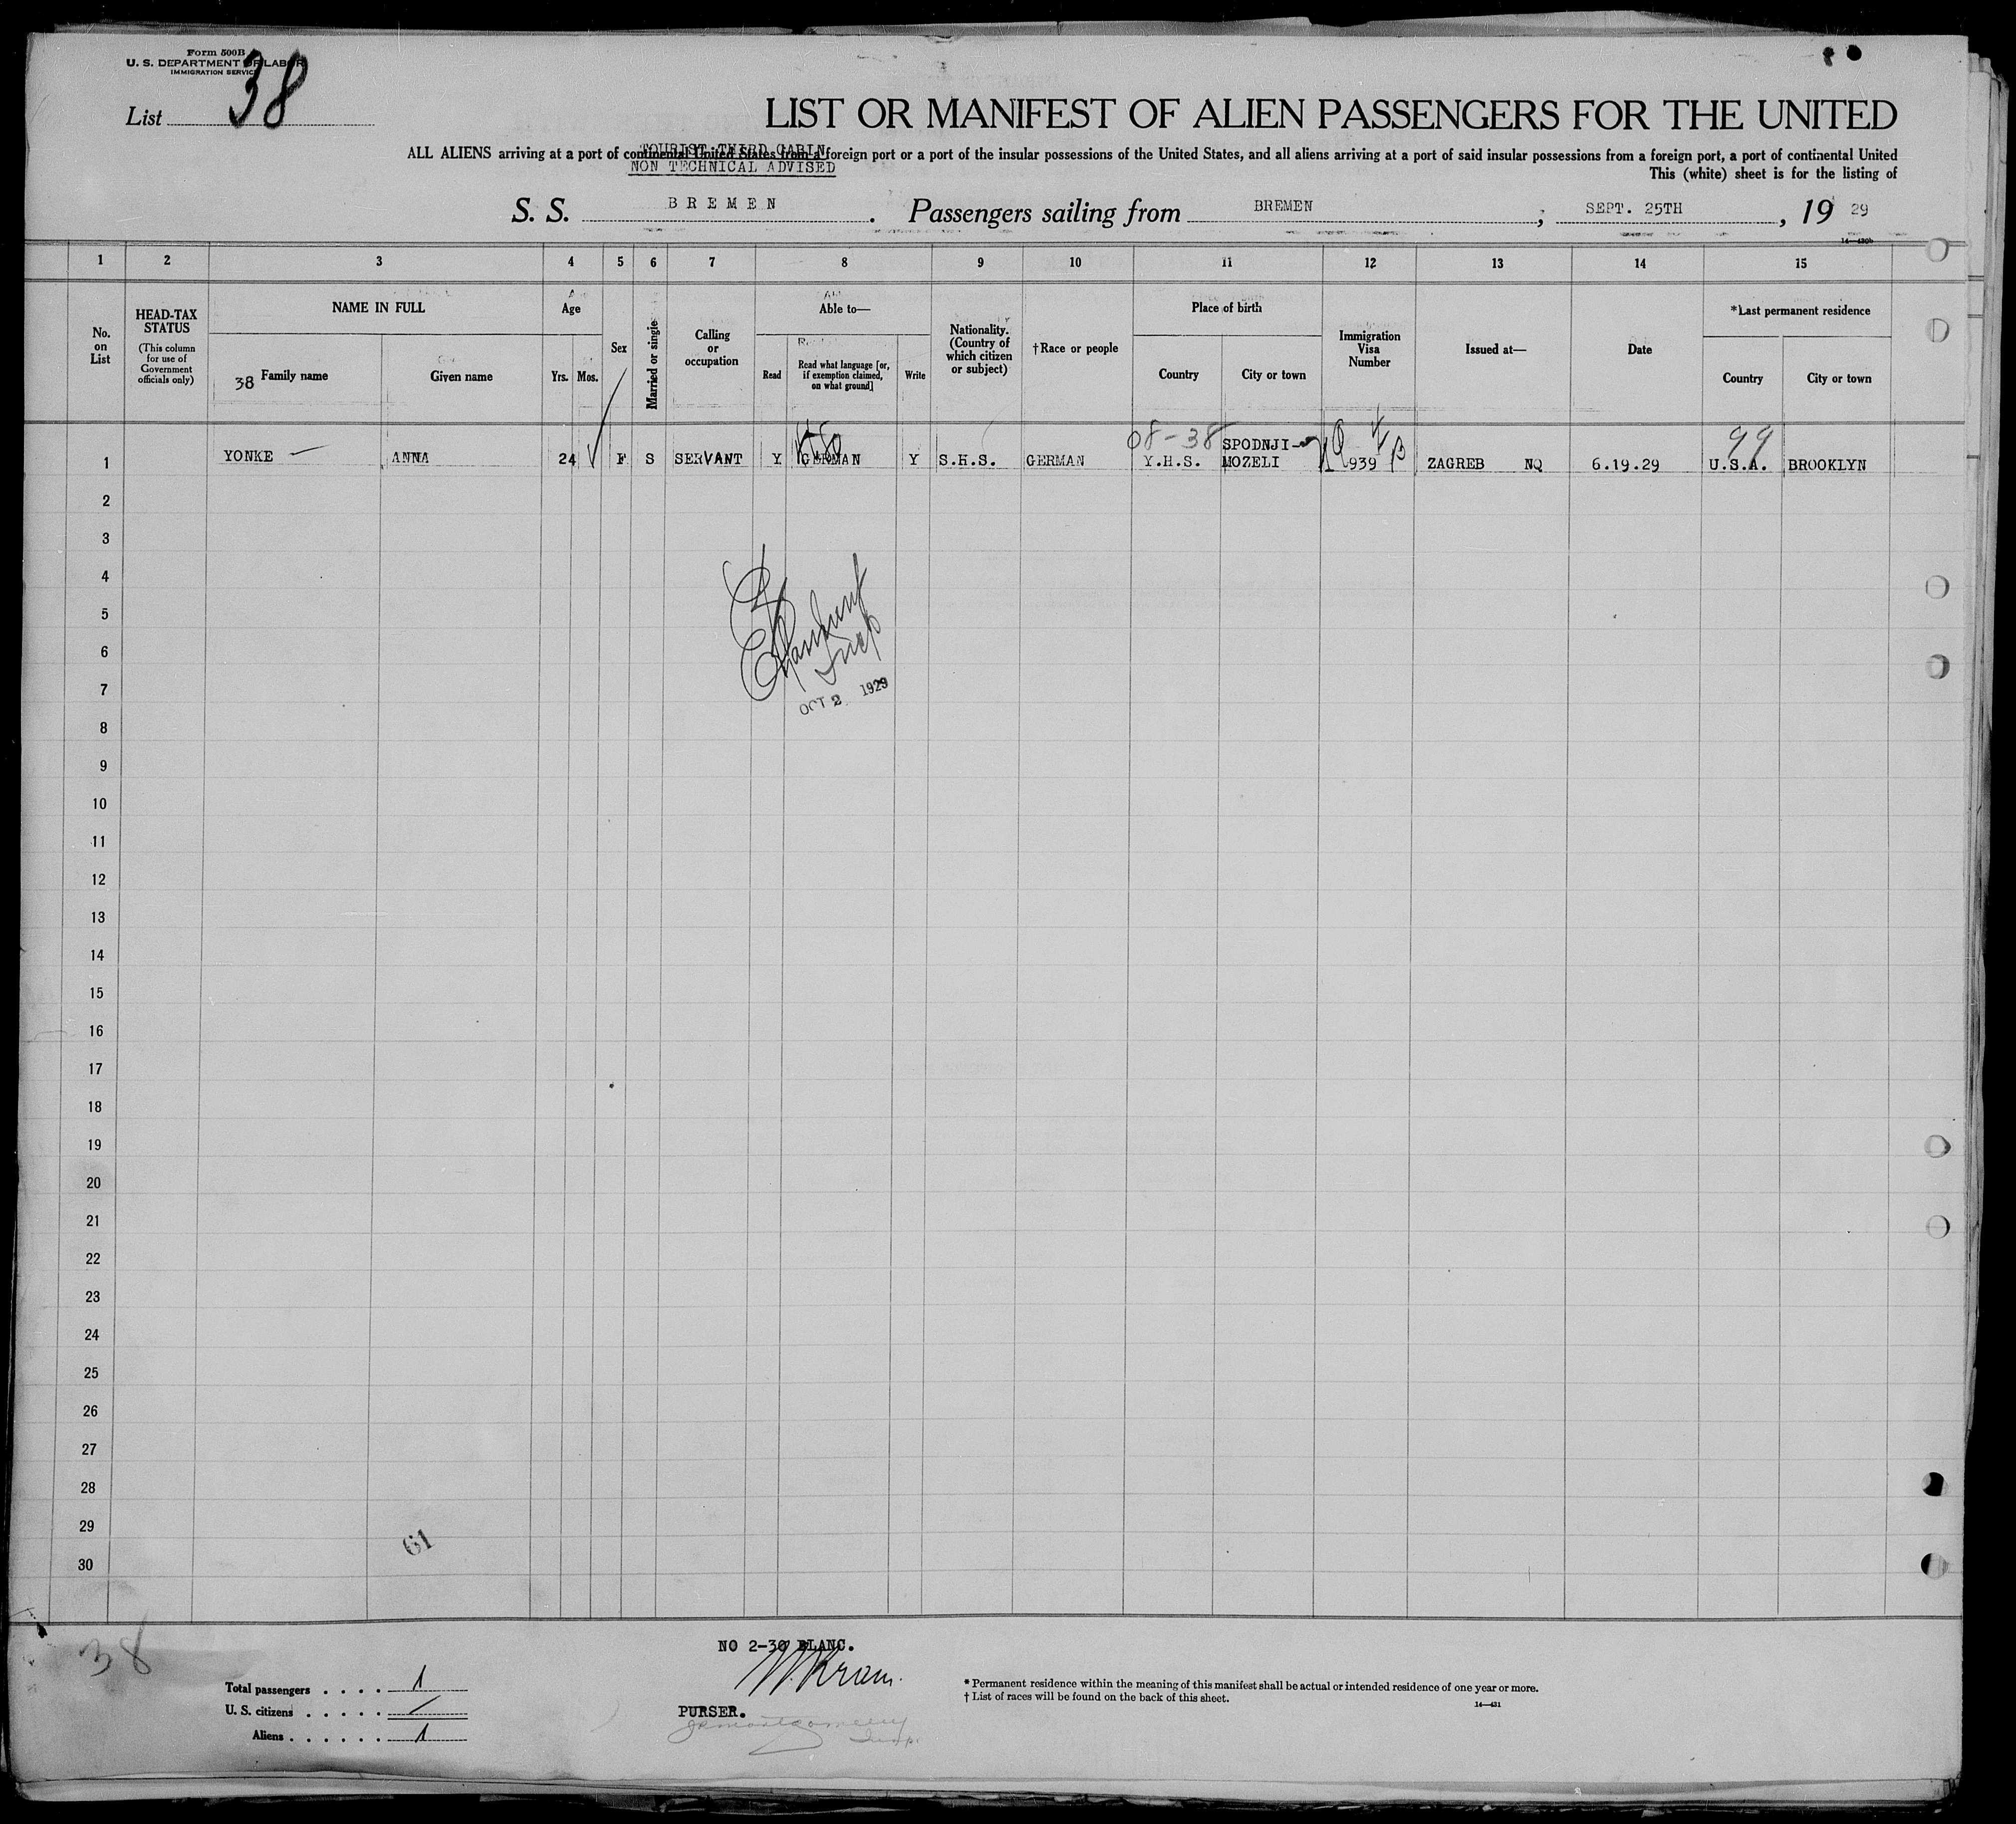 Form 500B
U. S. DEPARTMENT OF LABOR
IMMIGRATION SERVICE
List 38
LIST OR MANIFEST OF ALIEN PASSENGERS FOR THE UNITED
TOURIST THIRD CABIN
ALL ALIENS arriving at a port of continental United States from a foreign port or a port of the insular possessions of the United States, and all aliens arriving at a port of said insular possessions from a foreign port, a port of continental United
NON TECHNICAL ADVISED
This (white) sheet is for the listing of
S. S. BREMEN. Passengers sailing from BREMEN; SEPT. 25TH, 19 29
14—430b
1 2 3 4 5 6 7 8 9 10 11 12 13 14 15
No. on List
HEAD-TAX STATUS
(This column for use of Government officials only)
NAME IN FULL
38 Family name
Given name
Age
Yrs. Mos.
Sex
Married or single
Calling or occupation
Able to—
Read
Read what language [or, if exemption claimed, on what ground]
Write
Nationality. (Country of which citizen or subject)
†Race or people
Place of birth
Country
City or town
Immigration Visa Number
Issued at—
Date
*Last permanent residence
Country
City or town
08-38 SPODNJI- 99
1 YONKE ANNA 24 F S SERVANT Y GERMAN Y S.H.S. GERMAN Y.H.S. MOZELI 939 ZAGREB NQ 6.19.29 U.S.A. BROOKLYN
2
3
4
5
6
7
OCT 2 1929
8
9
10
11
12
13
14
15
16
17
18
19
20
21
22
23
24
25
26
27
28
29
61
30
38
NO 2-30 BLANC.
Total passengers . . . . 1
U. S. citizens . . . . . /
Aliens . . . . . . 1
W. Kram.
PURSER.
* Permanent residence within the meaning of this manifest shall be actual or intended residence of one year or more.
† List of races will be found on the back of this sheet.
14—431